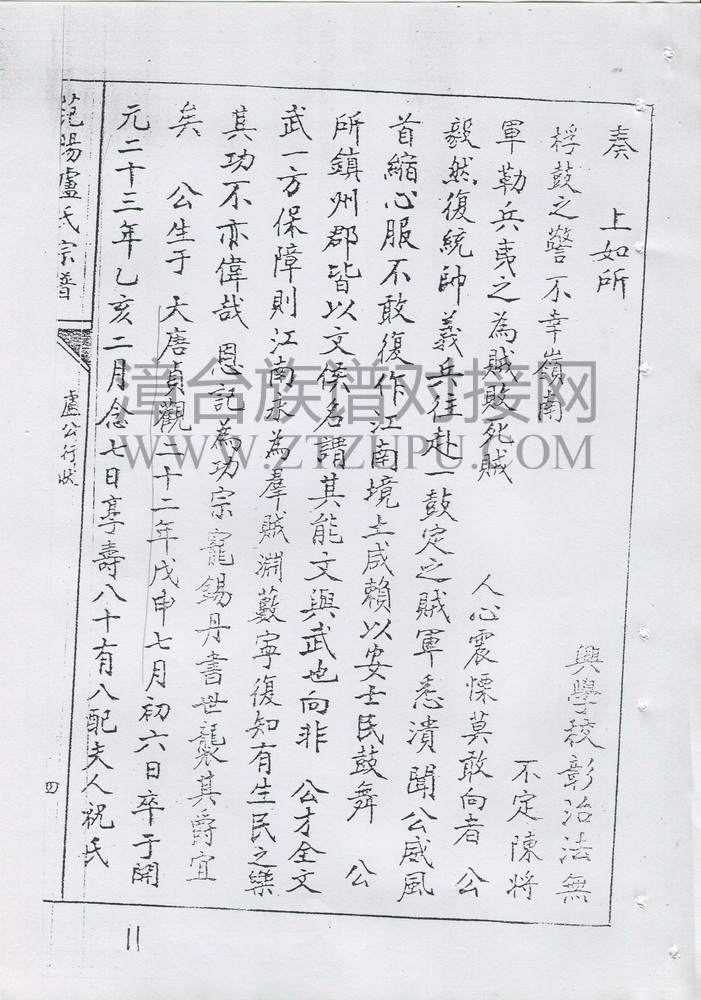 奏　上如所　興學校彰治法無
桴鼓之警不幸嶺南　不定陳將
軍勒兵夷之為賊敗死賊　人心震慄莫敢向者　公
毅然復統帥義兵往赴一鼓定之賊軍悉潰聞公威風
首縮心服不敢復作江南境土咸賴以安士民鼓舞　公
所鎮州郡皆以文侯名謂其能文與武也向非　公才全文
武一方保障則江南永為羣賊淵藪寧復知有生民之樂
其功不亦偉哉　恩記為功宗寵錫丹書世襲其爵宜
矣　公生于　大唐貞觀二十二年戊申七月初六日卒于開
元二十三年乙亥二月念七日享壽八十有八配夫人祝氏
范陽盧氏宗譜
盧公行狀
四
11
漳台族谱对接网
WWW.ZTZUPU.COM